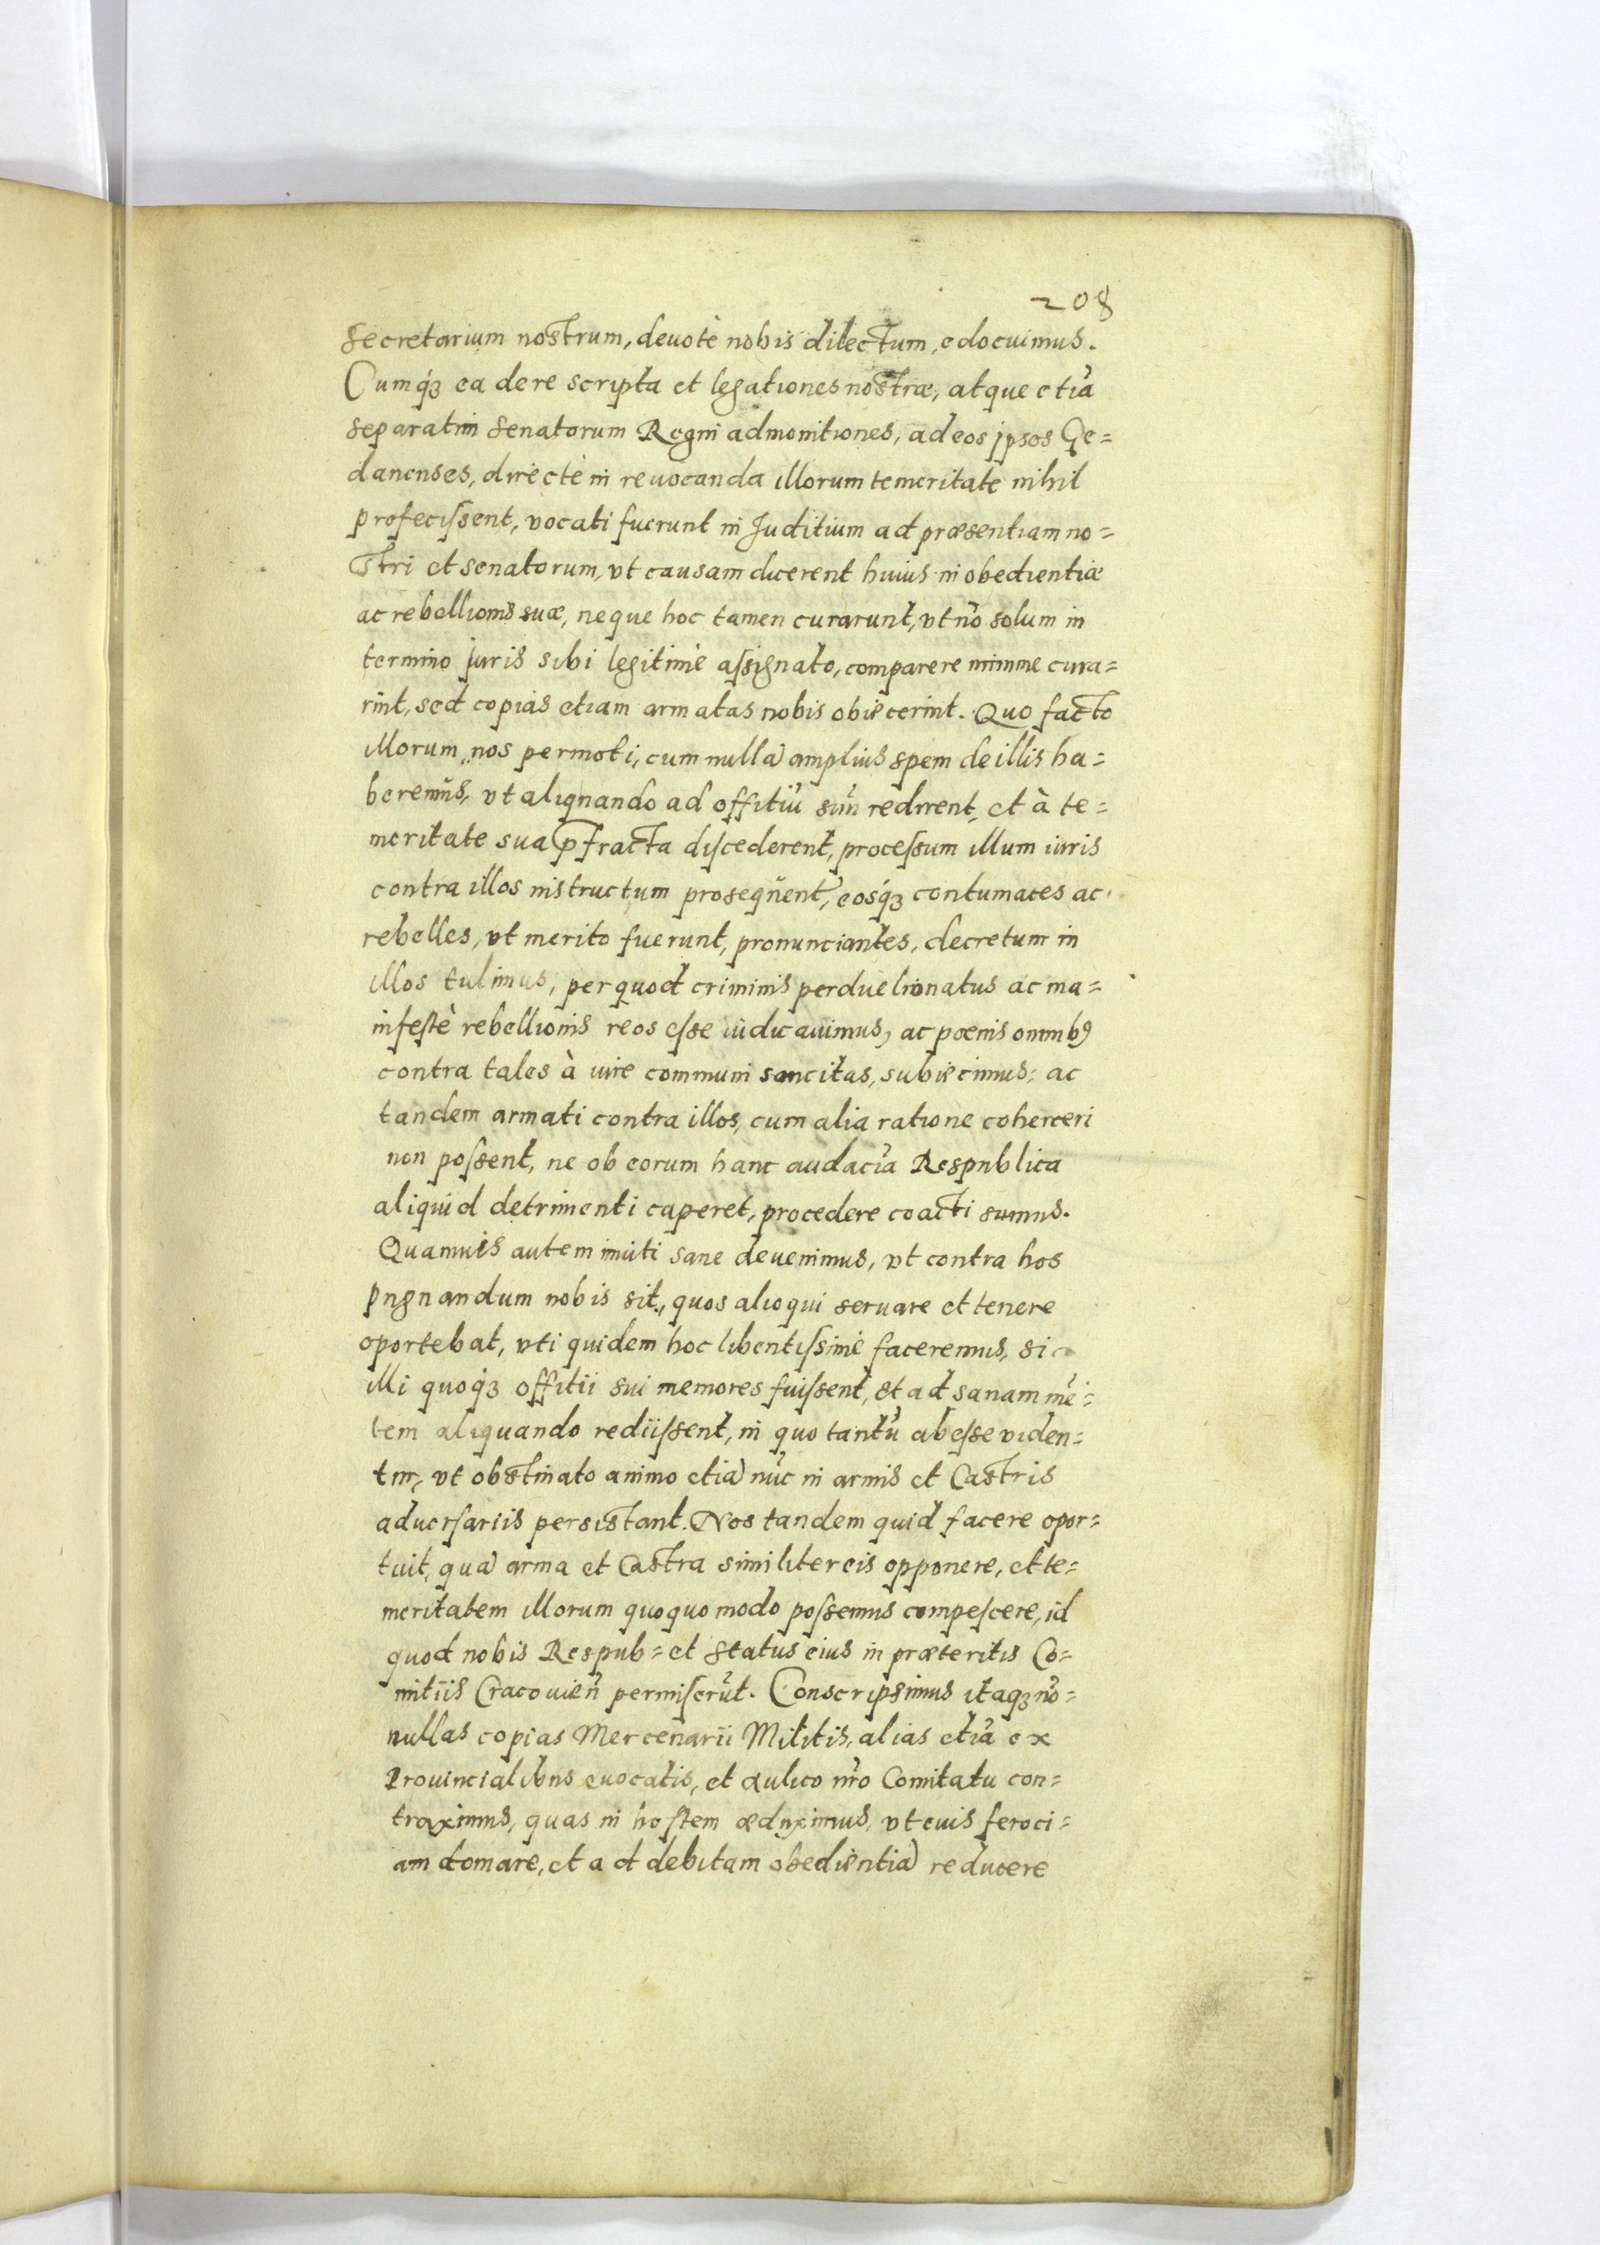 208
secretarium nostrum, deuotè nobis dilectum, edocuimus.
Cumq́ꝫ ea de re scripta et legationes nostræ, atque etiā
separatim senatorum Regni admonitiones, ad eos ipsos Ge=
danenses, directè in reuocanda illorum temeritate nihil
profecissent, vocati fuerunt in Juditium ad præsentiam no=
stri et senatorum, vt causam dicerent huius inobedientiæ
ac rebellionis suæ, neque hoc tamen curarunt, vt nō solum in
termino juris sibi legitimè assignato, comparere minime cura=
rint, sed copias etiam armatas nobis obiecerint. Quo facto
illorum nos permoti, cum nullā amplius spem de illis ha=
beremus, vt aliqnando ad offitiū suū redirent, et à te=
meritate sua ꝑfracta discederent, processum illum iuris
contra illos instructum proseqūent, eosq́ꝫ contumaces ac
rebelles, vt merito fuerunt, pronunciantes, decretum in
illos tulimus, per quod criminis perduelionatus ac ma=
infestè rebellionis reos esse iudicauimus, ac poenis omnibꝰ
contra tales à iure communi sancitas, subiecimus: ac
tandem armati contra illos, cum alia ratione coherceri
non possent, ne ob eorum hanc audaciā Respnblica
aliquid detrimenti caperet, procedere coacti sumus.
Quamuis autem inuiti sane deuenimus, vt contra hos
pngnandum nobis sit, quos alioqui seruare et tenere
oportebat, vti quidem hoc libentissimè faceremus, si
illi quoq́ꝫ offitii sui memores fuissent, et ad sanam mē=
tem aliquando rediissent, in quo tantū abesse viden=
tur, vt obstinato animo etiā nūc in armis et Castris
aduersariis persistant. Nos tandem quid facere opor=
tuit, quā arma et Castra similiter eis opponere, et te=
meritatem illorum quoquo modo possemus compescere, id
quod nobis Respub= et status eius in præteritis Co=
mitiis Cracouień permiserūt. Conscripsimus itaqꝫ nō=
nullas copias Mercenarii Militis, alias etiā ex
Prouincialibns euocatis, et aulico nr̄o Comitatu con=
traximus, quas in hostem æduximus, vt euis feroci=
am domare, et ad debitam obedientiā reducere